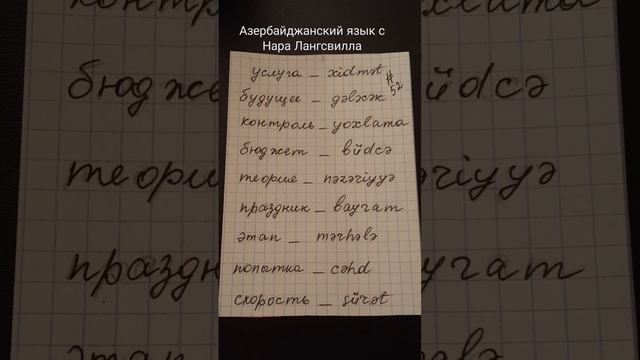 Азербайджанский язык с
Нара Лангсвилла
услуга – xidmət
#52
будущее – gələcək
контроль – yoxlama
бюджет – büdcə
теория – nəzəriyyə
праздник – bayram
этап – mərhələ
попытка – cəhd
скорость – sürət